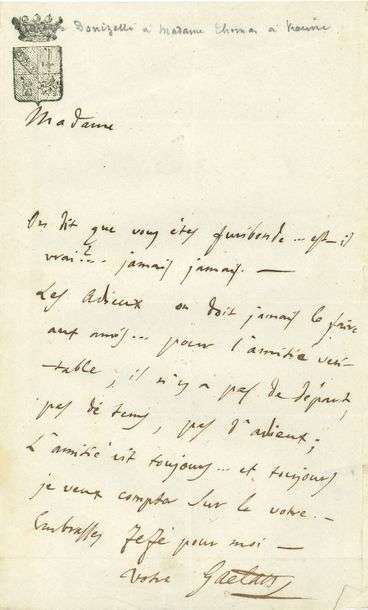 Donizetti à Madame Thomas à Vienne
Madame
On dit que vous êtes furibonde... est-il
vrai?.. jamais jamais. —
Les Adieux on doit jamais le faire
aux amis... pour l'amitié veri-
table; il n'y a pas de départ,
pas de tems, pas d'adieux;
L'amitié vit toujours... et toujours
je veux compter sur le votre. —
Embrasses Zézé pour moi —
Votre Gaetano